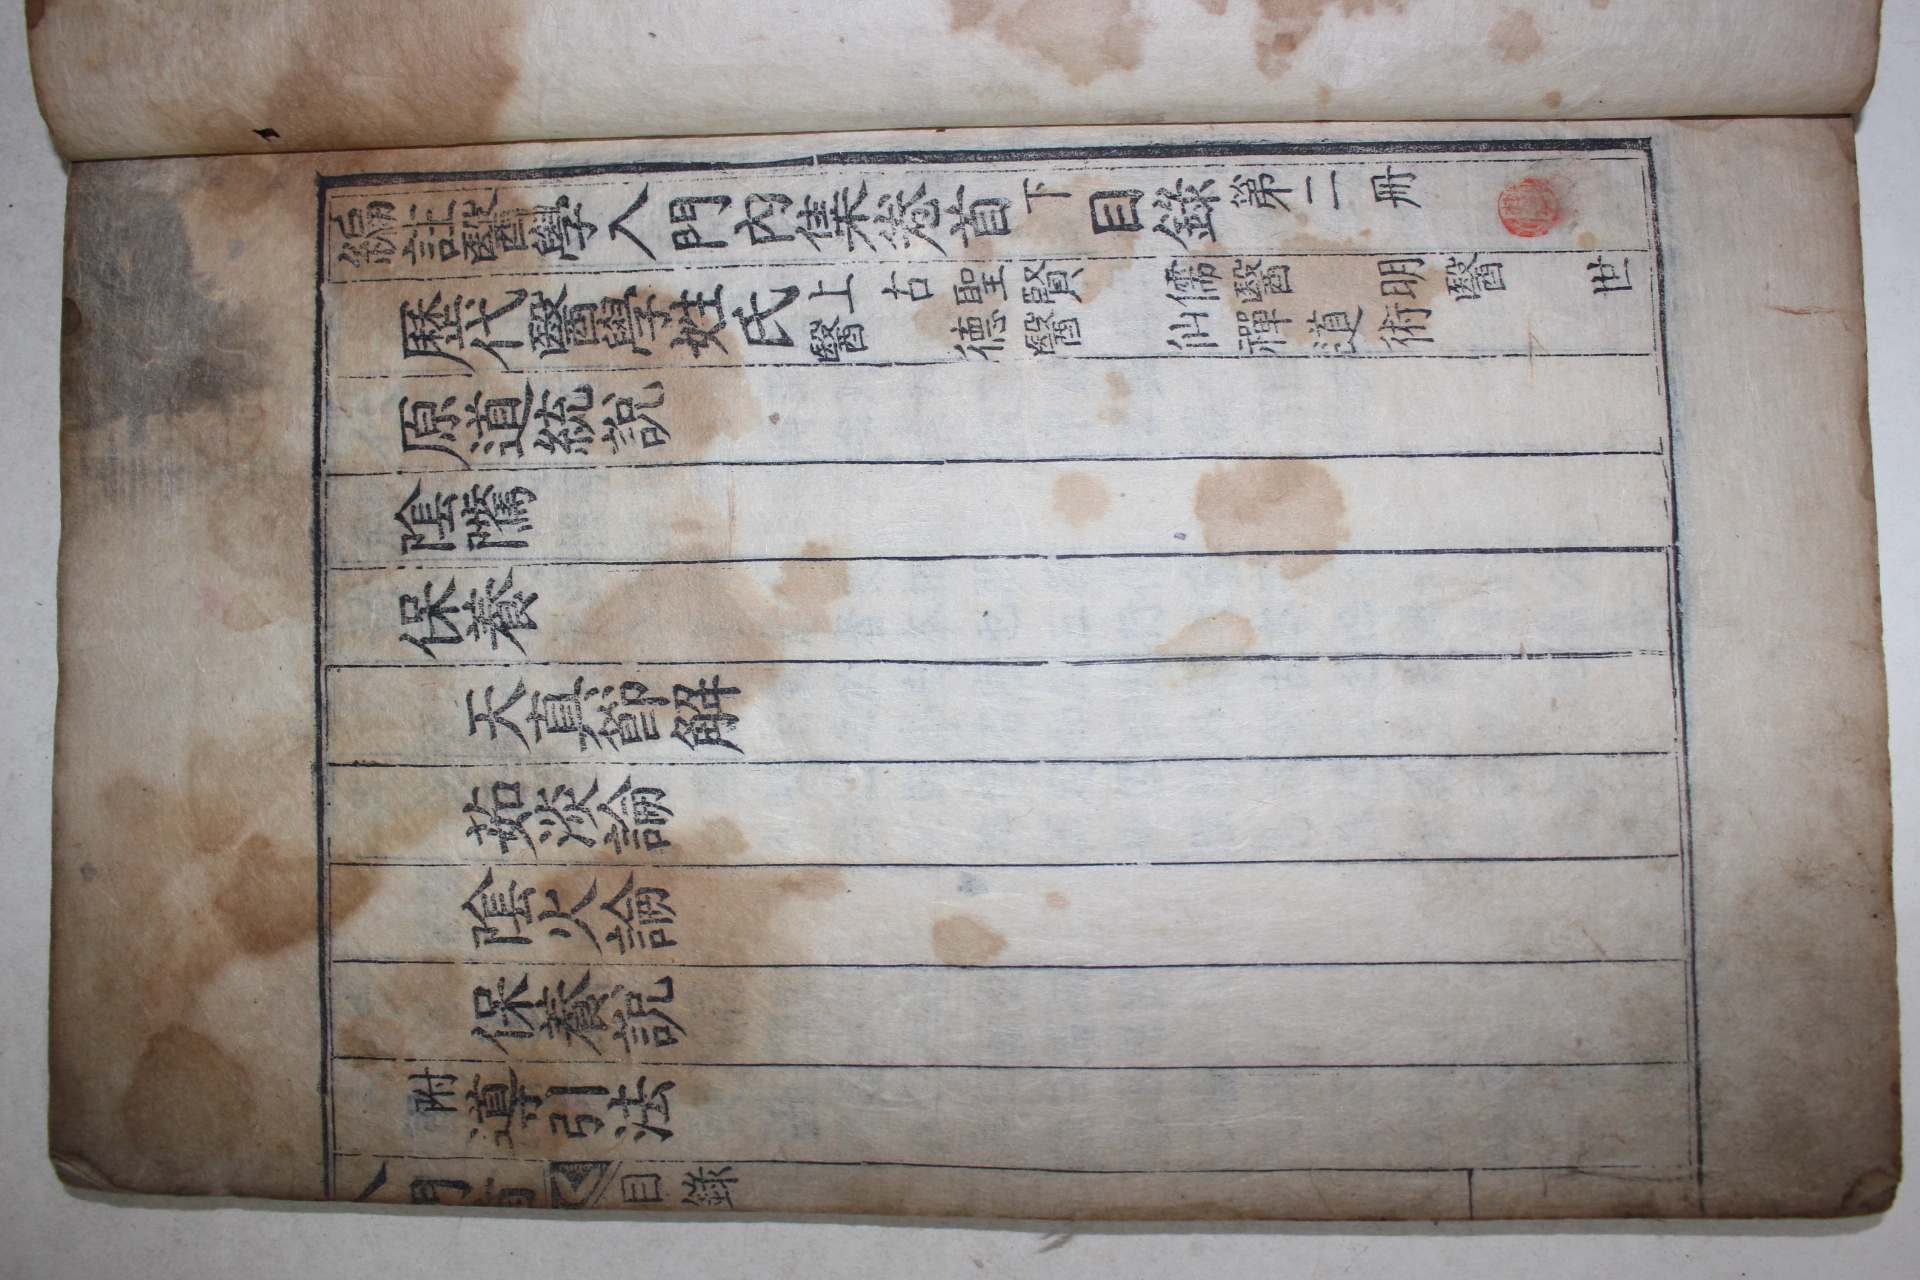 編註醫學入門内集卷首下目錄第二冊
歷代醫學姓氏
上古聖賢 儒醫 明醫 世
醫 德醫 仙禪道術
原道統說
陰隲
保養
天真節解
茹淡論
陰火論
保養說
附導引法
入門首 目錄